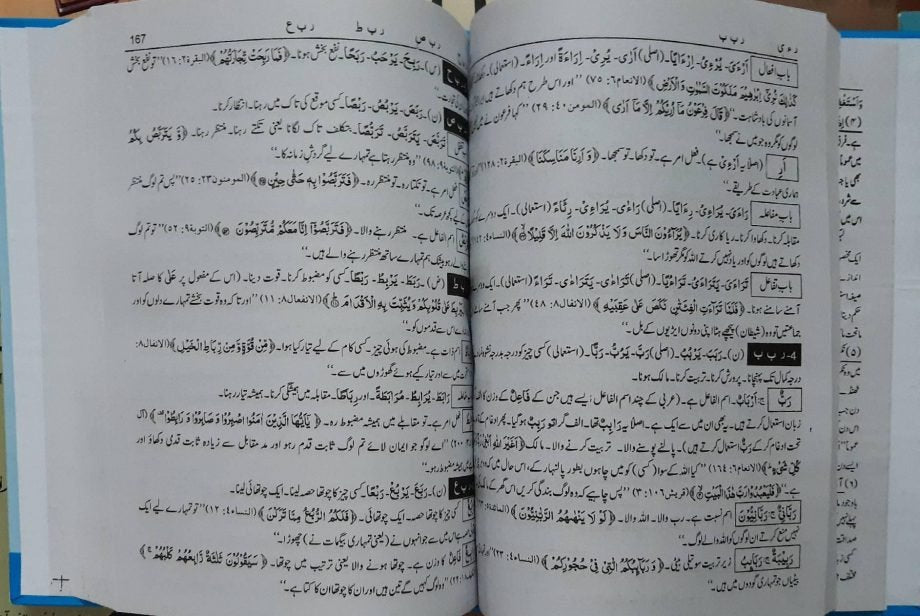 ر ء ی
ر ب ب
باب افعال
اَرْءَیَ- یُرْءِیُ- اِرْءَایًا۔ (اصلی) اَرٰی- یُرِیْ- اِرَاءَةً اور اِرَاءً۔ (استعمالی)۔ دکھانا۔
﴿كَذٰلِكَ نُرِیْۤ اِبْرٰهِیْمَ مَلَكُوْتَ السَّمٰوٰتِ وَ الْاَرْضِ﴾ (الانعام ۶: ۷۵) ''اور اس طرح ہم دکھاتے ہیں
آسمانوں کی بادشاہت۔'' ﴿قَالَ فِرْعَوْنُ مَاۤ اُرِیْكُمْ اِلَّا مَاۤ اَرٰی﴾ (المومن ۴۰: ۲۹) ''کہا فرعون نے میں نہیں
لوگوں کو مگر وہ جو میں نے سمجھا۔''
اَرِ
(اصلاً یہ اَرْءِیْ ہے)۔ فعل امر ہے۔ تو دکھا۔ تو سمجھا۔ ﴿وَ اَرِنَا مَنَاسِكَنَا﴾ (البقرة ۲: ۱۲۸)
ہماری عبادت کے طریقے۔''
باب مفاعلہ
رَاءَیَ- یُرَاءِیُ- رِءَایًا۔ (اصلی) رَاءٰی- یُرَاءِیْ- رِئَاءً (استعمالی)۔ ایک دوسرے کے
مقابلہ کرنا۔ دکھاوا کرنا۔ ریا کاری کرنا۔ ﴿یُرَآءُوْنَ النَّاسَ وَ لَا یَذْكُرُوْنَ اللّٰهَ اِلَّا قَلِیْلًا﴾ (النساء ۴:
دکھاتے ہیں لوگوں کو اور یاد نہیں کرتے اللہ کو مگر تھوڑا سا۔''
باب تفاعل
تَرَاءَیَ- یَتَرَاءَیُ- تَرَاءُیًا۔ (اصلی) تَرَاءٰی- یَتَرَاءٰی- تَرَاءً (استعمالی)۔ ایک دوسرے
آمنے سامنے ہونا۔ ﴿فَلَمَّا تَرَآءَتِ الْفِئَتٰنِ نَكَصَ عَلٰی عَقِبَیْهِ﴾ (الانفال ۸: ۴۸) ''پھر جب آمنے سامنے
جماعتیں تو وہ (شیطان) پیچھے ہٹا اپنی دونوں ایڑیوں کے بل۔''
4- ر ب ب
(ن)۔ رَبَبَ- یَرْبُبُ- (اصلی) رَبَّ- یَرُبُّ- رَبًّا۔ (استعمالی) کسی چیز کو درجہ بدرجہ نشوونما
درجہ کمال تک پہنچانا۔ پرورش کرنا۔ تربیت کرنا۔ مالک ہونا۔
رَبٌّ
ج: اَرْبَابٌ۔ اسم الفاعل ہے۔ (عربی کے چند اسم الفاعل ایسے ہیں جن کے فَاعِلٌ کے وزن کا الف
زبان استعمال کرتے ہیں۔ یہ بھی ان میں سے ایک ہے۔ اصلاً یہ رَابِبٌ تھا۔ الف گرا تو رَبِبٌ ہو گیا۔ پھر ادغام کے
تحت ادغام کر کے رَبٌّ استعمال کرتے ہیں)۔ پالنے پوسنے والا۔ تربیت کرنے والا۔ مالک۔ ﴿اَغَیْرَ اللّٰهِ اَبْغِیْ
كُلِّ شَیْءٍ﴾ (الانعام ۶: ۱۶۴) ''کیا اللہ کے سوا (کسی) کو میں چاہوں بطور پالنہار کے، اس حال میں کہ وہ
ہے۔'' ﴿فَلْیَعْبُدُوْا رَبَّ هٰذَا الْبَیْتِ﴾ (قریش ۱۰۶: ۳) ''پس چاہیے کہ وہ لوگ بندگی کریں اس گھر کے
رَبَّانِیٌّ ج: رَبَّانِیُّوْنَ
اسم نسبت ہے۔ رب والا۔ اللہ والا۔ ﴿لَوْ لَا یَنْهٰىهُمُ الرَّبّٰنِیُّوْنَ﴾ (المائدة
نہیں منع کرتے ان لوگوں کو اللہ والے لوگ۔''
رَبِیْبَةٌ ج: رَبَائِبُ
زیر تربیت سوتیلی بیٹی۔ ﴿وَ رَبَآىِٕبُكُمُ الّٰتِیْ فِیْ حُجُوْرِكُمْ﴾ (النساء ۴: ۲۳)
بیٹیاں جو تمہاری گودوں میں ہیں۔''
ر ب ص
ر ب ط
ر ب ع
167
(س)۔ رَبِحَ- یَرْبَحُ- رَبْحًا۔ نفع بخش ہونا۔ ﴿فَمَا رَبِحَتْ تِّجَارَتُهُمْ﴾ (البقرة ۲: ۱۶) ''تو نفع بخش
(ن)۔ رَبَصَ- یَرْبُصُ- رَبْصًا۔ کسی موقع کی تاک میں رہنا۔ انتظار کرنا۔
تَرَبَّصَ- یَتَرَبَّصُ- تَرَبُّصًا۔ بتکلف تاک لگانا یعنی تکتے رہنا۔ منتظر رہنا۔ ﴿وَ یَتَرَبَّصُ بِكُمُ
۹: ۹۸) ''وہ منتظر رہتا ہے تمہارے لیے گردش زمانہ کا۔''
فعل امر ہے۔ تو تکتا رہ۔ تو منتظر رہ۔ ﴿فَتَرَبَّصُوْا بِهٖ حَتّٰی حِیْنٍ﴾ (المومنون ۲۳: ۲۵) ''پس تم لوگ منتظر
عرصہ تک۔''
اسم الفاعل ہے۔ منتظر رہنے والا۔ ﴿فَتَرَبَّصُوْۤا اِنَّا مَعَكُمْ مُّتَرَبِّصُوْنَ﴾ (التوبة ۹: ۵۲) ''تو تم لوگ
رہو بیشک ہم تمہارے ساتھ منتظر رہنے والے ہیں۔''
(ض)۔ رَبَطَ- یَرْبِطُ- رَبْطًا۔ کسی کو مضبوط کرنا۔ قوت دینا۔ (اس کے مفعول پر عَلٰی کا صلہ آتا
عَلٰی قُلُوْبِكُمْ وَ یُثَبِّتَ بِهِ الْاَقْدَامَ﴾ (الانفال ۸: ۱۱) ''اور تا کہ وہ قوت بخشے تمہارے دلوں کو اور
اس سے قدموں کو۔''
اسم ذات ہے۔ مضبوط کی ہوئی چیز۔ کسی کام کے لیے تیار کیا ہوا۔ ﴿مِنْ قُوَّةٍ وَّ مِنْ رِّبَاطِ الْخَیْلِ﴾ (الانفال ۸:
میں سے اور تیار کیے ہوئے گھوڑوں میں سے۔''
رَابَطَ- یُرَابِطُ- مُرَابَطَةً- اور رِبَاطًا۔ مقابلہ میں ہمیشگی کرنا۔ ہمیشہ تیار رہنا۔
فعل امر ہے۔ تو مقابلے میں ہمیشہ مضبوط رہ۔ ﴿یٰۤاَیُّهَا الَّذِیْنَ اٰمَنُوا اصْبِرُوْا وَ صَابِرُوْا وَ رَابِطُوْا﴾ (آل
۲۰۰) ''اے لوگو جو ایمان لائے تم لوگ ثابت قدم رہو اور مد مقابل سے زیادہ ثابت قدمی دکھاؤ اور
میں ہمیشہ مضبوط رہو۔''
(ن)۔ رَبَعَ- یَرْبُعُ- رَبْعًا۔ کسی چیز کا چوتھا حصہ لینا۔ ایک چوتھائی لینا۔
کسی چیز کا چوتھا حصہ۔ ایک چوتھائی۔ ﴿فَلَكُمُ الرُّبُعُ مِمَّا تَرَكْنَ﴾ (النساء ۴: ۱۲) ''تو تمہارے لیے ایک
اس میں سے جو انہوں نے (یعنی تمہاری بیگمات نے) چھوڑا۔''
فَاعِلٌ کا وزن ہے۔ چوتھا ہونے والا یعنی ترتیب میں چوتھا۔ ﴿سَیَقُوْلُوْنَ ثَلٰثَةٌ رَّابِعُهُمْ كَلْبُهُمْ﴾
''وہ لوگ کہیں گے تین ہیں اور ان کا چوتھا ان کا کتا ہے۔''